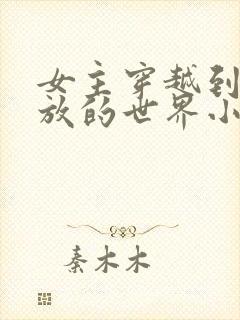 女主穿越到
放的世界小
秦木木